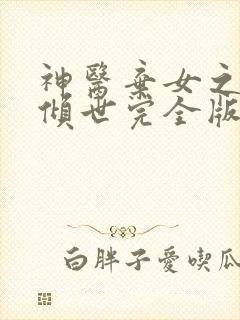 神醫棄女之
傾世完全版
白胖子愛喫瓜